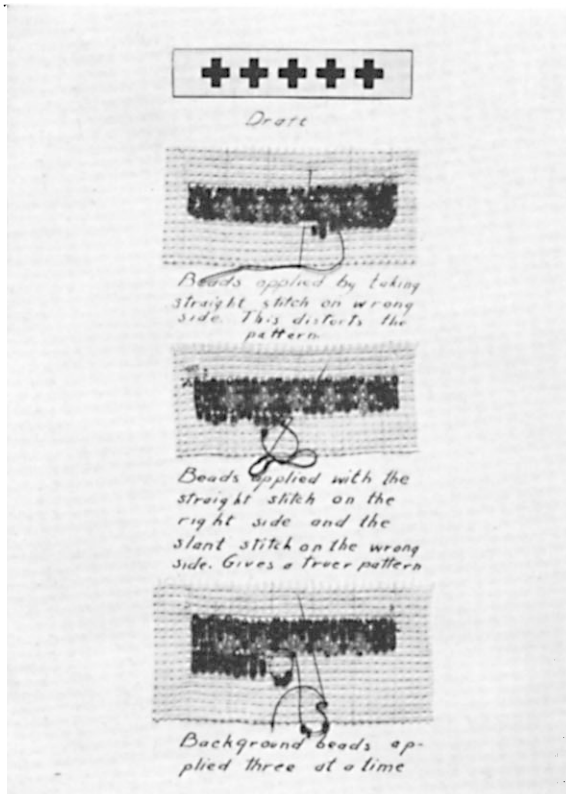 Draft
Beads applied by taking
straight stitch on wrong
side. This distorts the
pattern.
Beads applied with the
straight stitch on the
right side and the
slant stitch on the wrong
side. Gives a truer pattern
Background beads ap-
plied three at a time